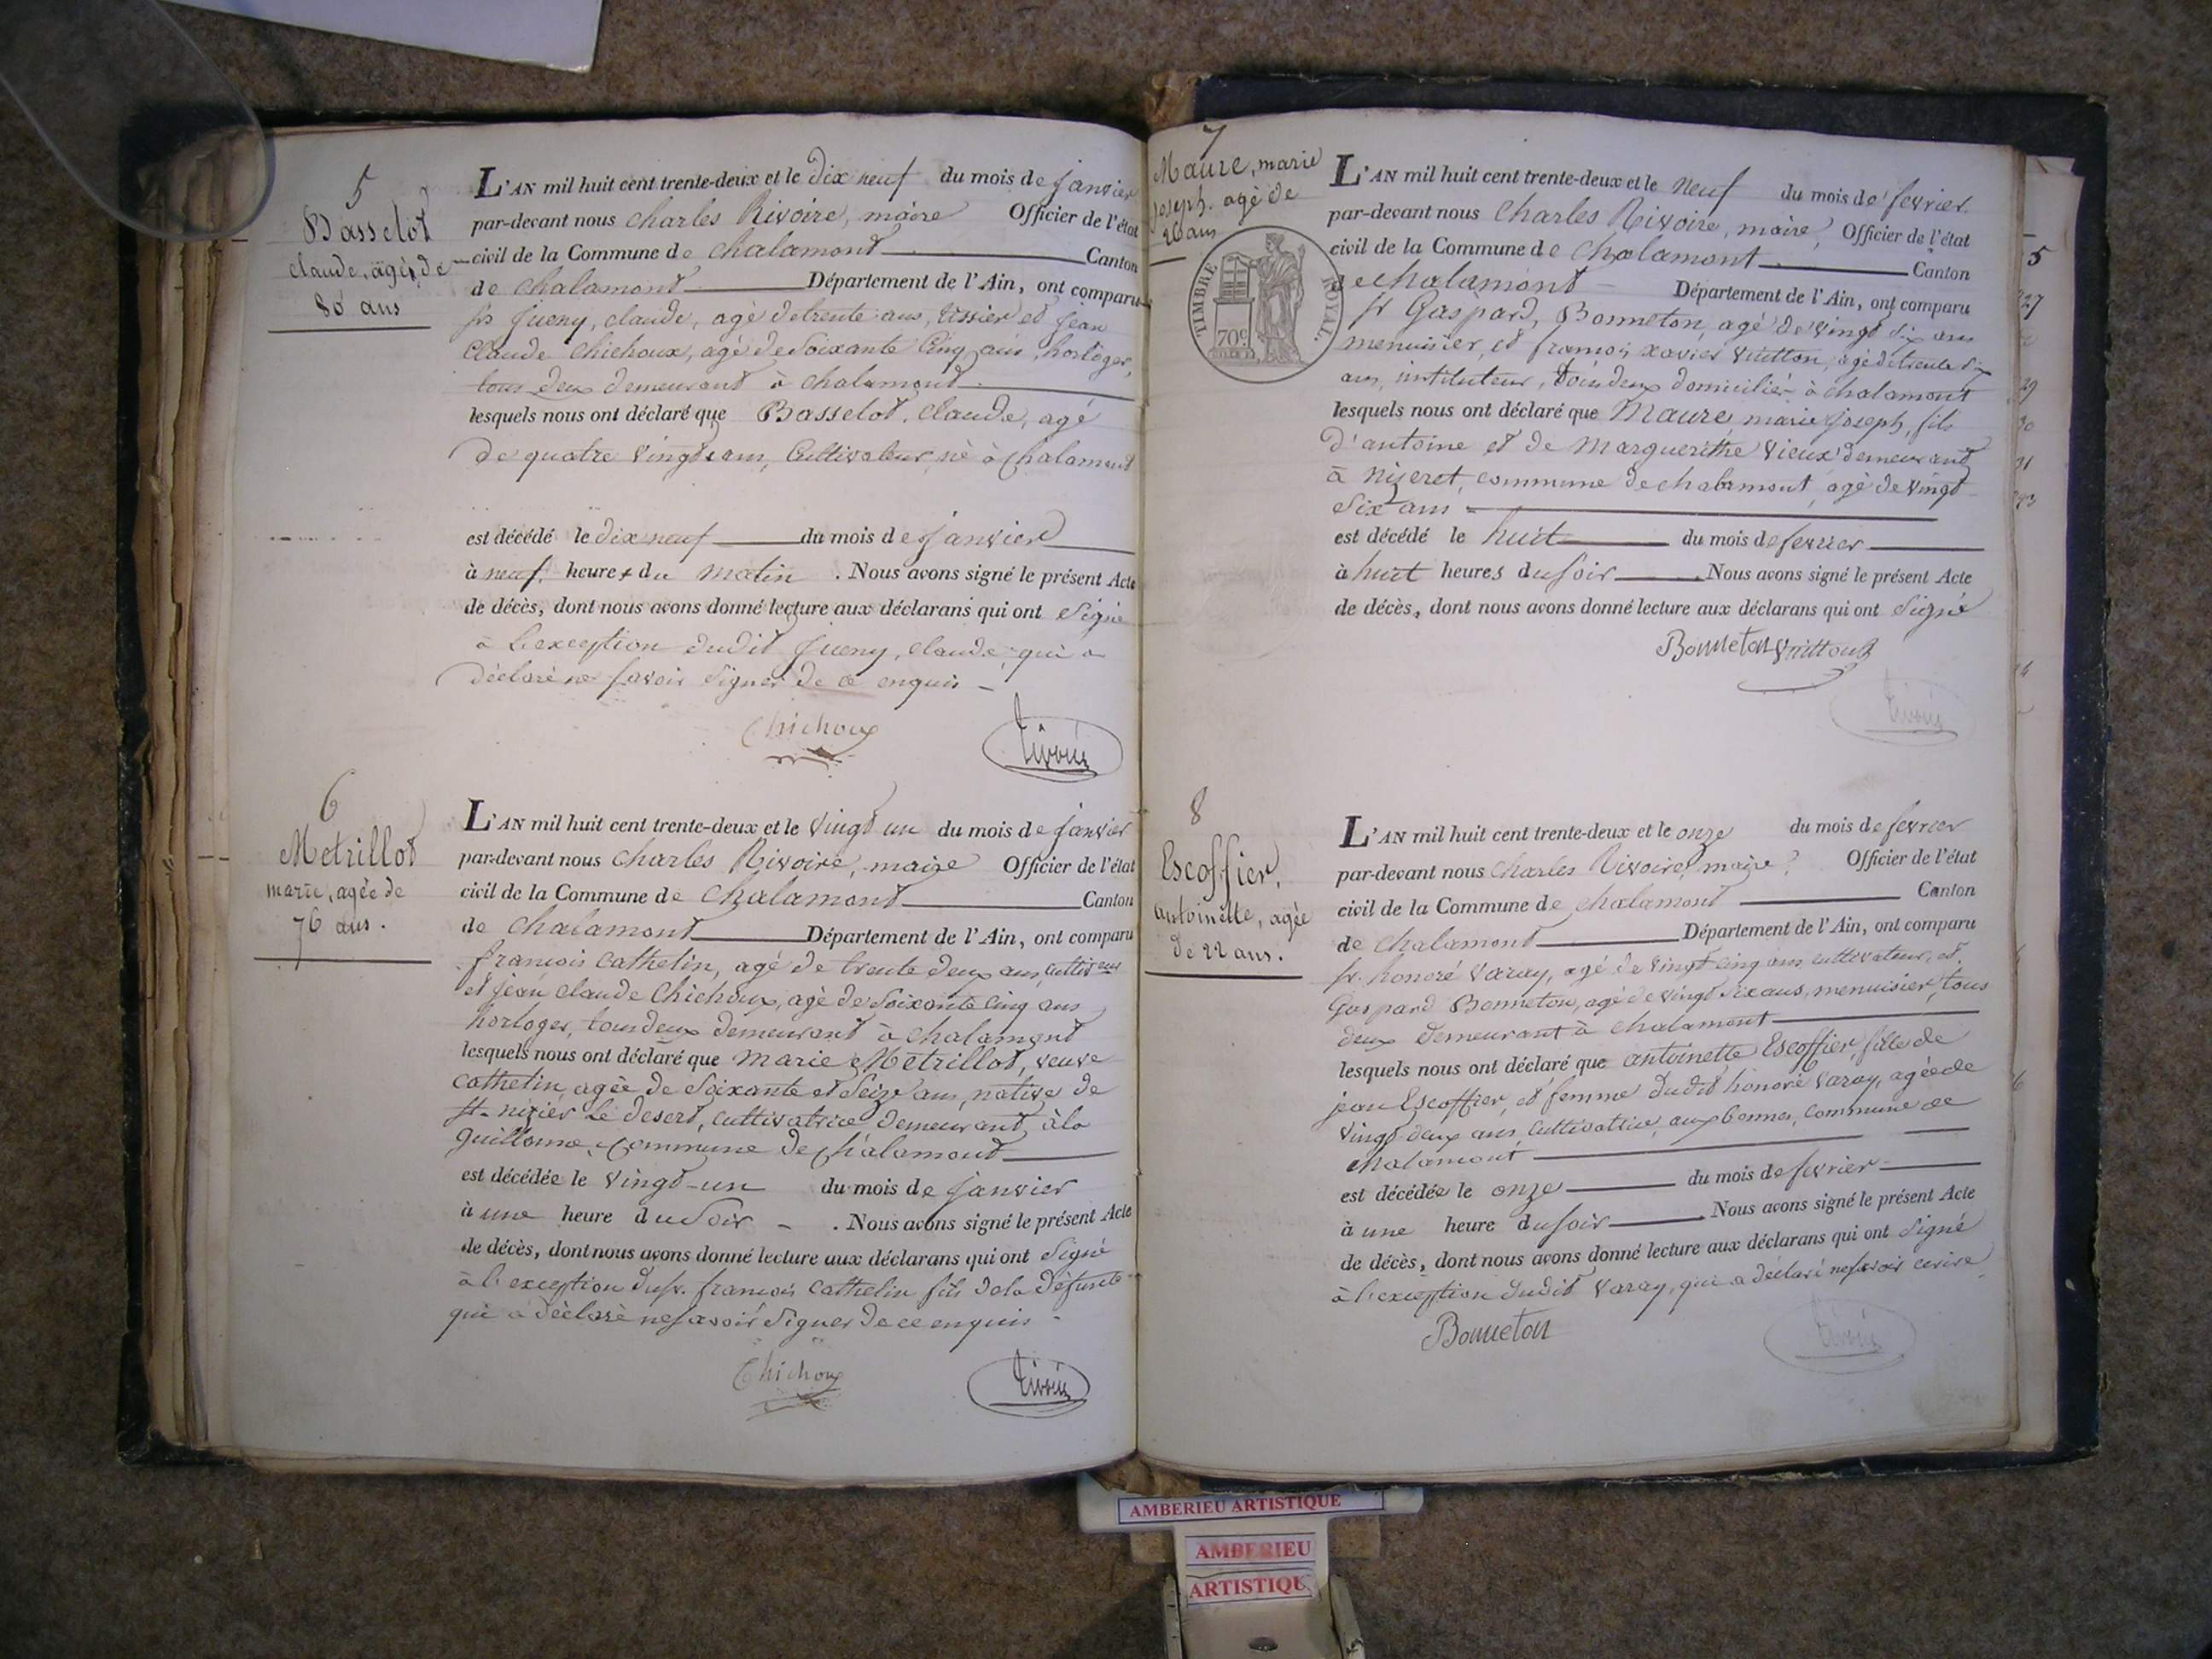 5
Basselot
claude, agé, de
80 ans
L'AN mil huit cent trente-deux et le dix neuf du mois de janvier
par-devant nous charles Rivoire, maire Officier de l'état
civil de la Commune de chalamont Canton
de chalamont Département de l'Ain, ont comparu
sr jueny, claude, agé de trente ans, tissier et jean
claude chichoux, agé de soixante cinq ans, horloger,
tous deux demeurant à chalamont
lesquels nous ont déclaré que Basselot, claude, agé
de quatre vingts ans, cultivateur, né à chalamont
est décédé le dix neuf du mois de janvier
à neuf heures du matin. Nous avons signé le présent Acte
de décès, dont nous avons donné lecture aux déclarans qui ont signé
à l'exception dudit jueny, claude, qui a
déclaré ne savoir signer de ce enquis
Chichoux
Rivoire
6
Metrillot
marie, agée de
76 ans.
L'AN mil huit cent trente-deux et le vingt un du mois de janvier
par-devant nous charles Rivoire, maire Officier de l'état
civil de la Commune de chalamont Canton
de chalamont Département de l'Ain, ont comparu
francois cathelin, agé de trente deux ans, cultivateur
et jean claude chichoux, agé de soixante cinq ans
horloger, tous deux demeurant à chalamont
lesquels nous ont déclaré que marie Metrillot, veuve
cathelin, agée de soixante et seize ans, native de
st. nizier le desert, cultivatrice demeurant à la
guillonne, commune de chalamont
est décédée le vingt-un du mois de janvier
à une heure du soir. Nous avons signé le présent Acte
de décès, dont nous avons donné lecture aux déclarans qui ont signé
à l'exception du sr. francois cathelin fils de la défunte
qui a déclaré ne savoir signer de ce enquis
Chichoux
Rivoire
7
Maure, marie
joseph. agé de
26 ans
TIMBRE ROYAL.
70c
L'AN mil huit cent trente-deux et le neuf du mois de fevrier.
par-devant nous charles Rivoire, maire, Officier de l'état
civil de la Commune de chalamont Canton
de chalamont Département de l'Ain, ont comparu
sr Gaspard, Bonneton, agé de vingt six ans
menuisier, et francois xavier Vuitton, agé de trente six
ans, instituteur, tous deux domiciliés à chalamont
lesquels nous ont déclaré que Maure marie joseph, fils
d'antoine et de Marguerithe Vieux demeurant
à Nizeret, commune de chalamont, agé de vingt
six ans
est décédé le huit du mois de fevrier
à huit heures du soir. Nous avons signé le présent Acte
de décès, dont nous avons donné lecture aux déclarans qui ont signé
Bonneton Vuitton
Rivoire
8
Escoffier,
antoinette, agée
de 22 ans.
L'AN mil huit cent trente-deux et le onze du mois de fevrier
par-devant nous charles Rivoire, maire Officier de l'état
civil de la Commune de chalamont Canton
de chalamont Département de l'Ain, ont comparu
sr. honoré varay, agé de vingt cinq ans cultivateur, et
Gaspard Bonneton, agé de vingt six ans, menuisier, tous
deux demeurant à chalamont
lesquels nous ont déclaré que antoinette Escoffier, fille de
jean Escoffier, et femme dudit honoré varay, agée de
vingt deux ans, cultivatrice, aux bonnes, commune de
chalamont
est décédée le onze du mois de fevrier
à une heure du soir. Nous avons signé le présent Acte
de décès, dont nous avons donné lecture aux déclarans qui ont signé
à l'exception dudit varay, qui a declaré ne savoir ecrire
Bonneton
Rivoire
5
AMBERIEU ARTISTIQUE
AMBERIEU
ARTISTIQUE